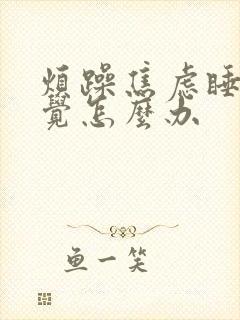 煩躁焦虑睡
覺怎麼办
鱼一笑